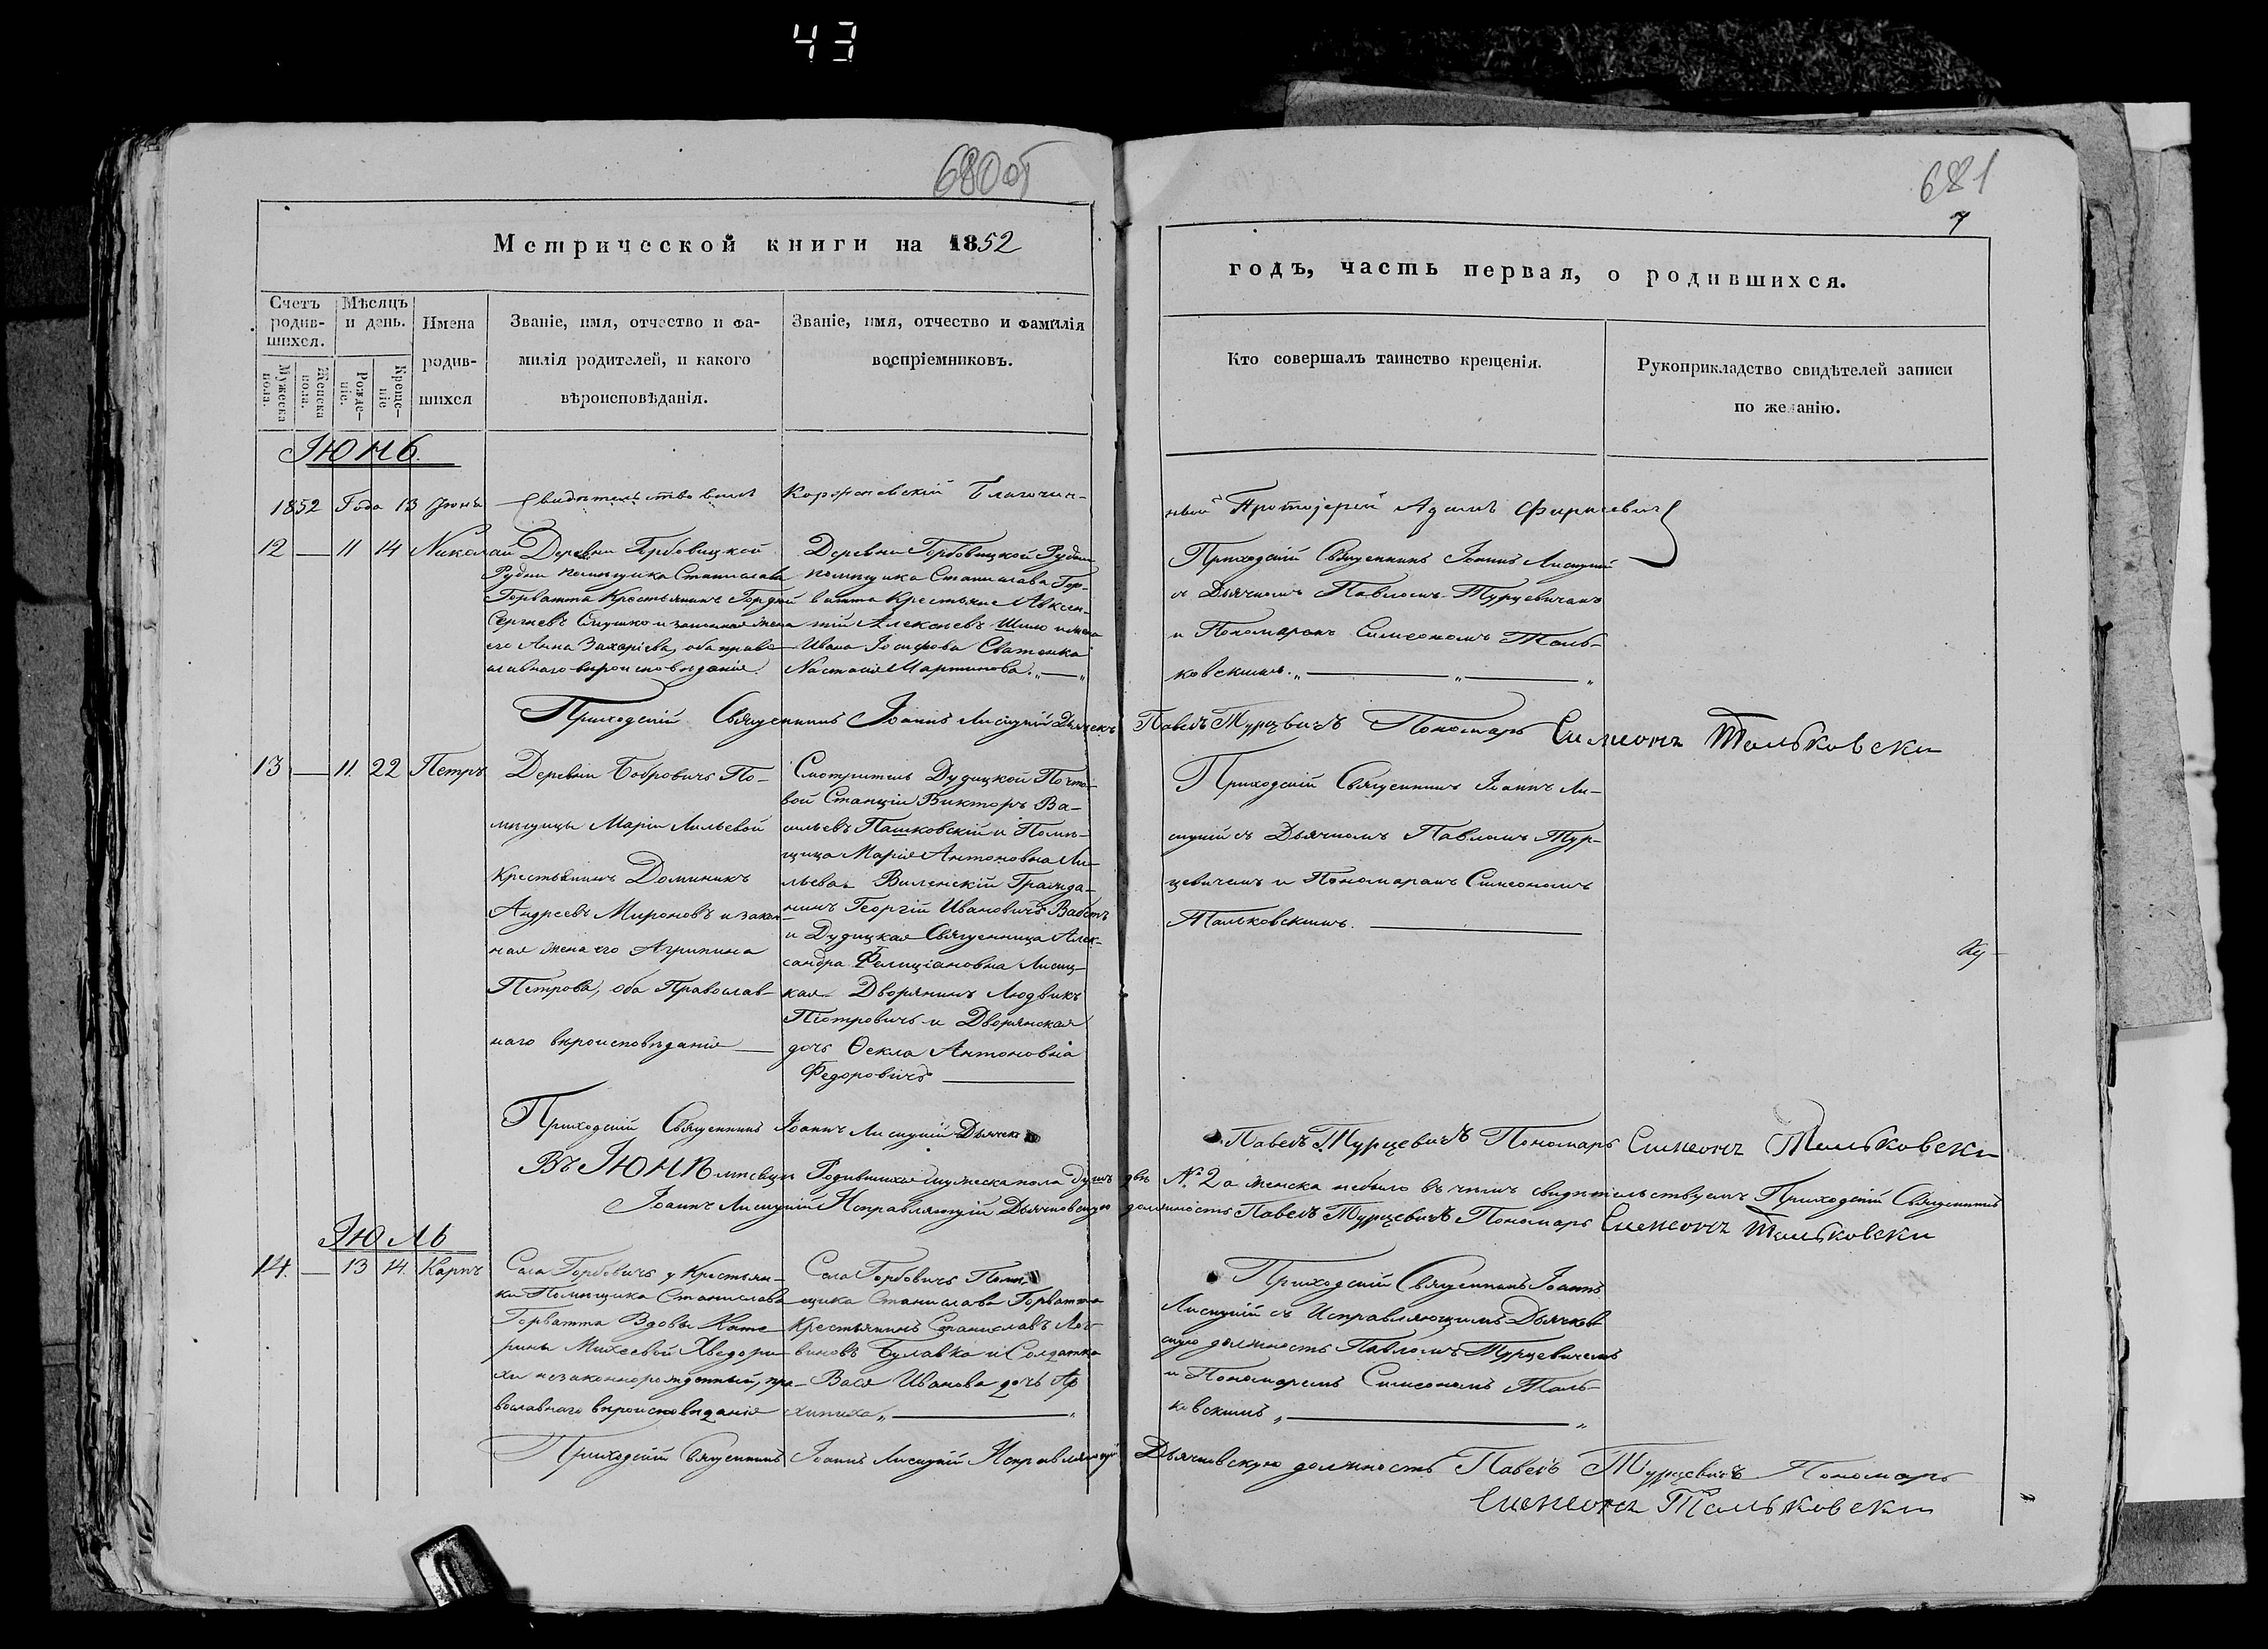 43
680 об
681
7
Метрической книги на 1852
годъ, часть первая, о родившихся.
Счетъ родив-шихся.
Мѣсяцъ и день.
Имена родив-шихся
Званіе, имя, отчество и фа-
милія родителей, и какого
вѣроисповѣданія.
Званіе, имя, отчество и фамилія
воспріемниковъ.
Мужеска пола.
Женска пола.
Рожде-ніе.
Креще-ніе
Кто совершалъ таинство крещенія.
Рукоприкладство свидѣтелей записи
по желанію.
Іюнь.
1852 Года 13 Іюня Свидѣтельствовалъ Благочин-
ный Протоіерей Адамъ
12 — 11 14 Николай
Деревни Горбовицкой
Рудни помѣщика Станислава
Горватта Крестьянинъ Гордѣй
Сергѣевъ Глушко и законная жена
его Анна Захаріева, оба право-
славнаго вѣроисповѣданія.
Деревни Горбовицкой Рудни
помѣщика Станислава Гор-
ватта Крестьяне Авксен-
тій Алексѣевъ Шило и жена
Ивана Іосифова Сватенка
Настасія Мартинова. „—„
Приходскій Священникъ Іоаннъ Лисицкій
съ Дьячкомъ Павломъ Турцевичемъ
и Пономаремъ Симеономъ Таль-
ковскимъ. „ — „ — „
Приходскій Священникъ Іоаннъ Лисицкій Дьячекъ Павелъ Турцевичъ Пономарь Симеонъ Тальковски
13 — 11. 22 Петръ
Деревни Бобровичъ По-
мѣщицы Маріи Лильевой
Крестьянинъ Доминикъ
Андреевъ Мироновъ и закон-
ная жена его Агрипина
Петрова, оба Православ-
наго вѣроисповѣданія —
Смотритель Дудицкой Почто-
вой Станціи Викторъ Ва-
сильевъ Пашковскій и Помѣ-
щица Марія Антоновна Ли-
льева. Виленскій Гражда-
нинъ Георгій Ивановичъ
и Дудицкая Священница Алек-
сандра Фелиціановна Лисиц-
кая. Дворянинъ Людвикъ
Піотровичъ и Дворянская
дочь Ѳекла Антоновна
Федоровичъ —
Приходскій Священникъ Іоаннъ Ли-
сицкій съ Дьячкомъ Павломъ Тур-
цевичемъ и Пономаремъ Симеономъ
Тальковскимъ. —
Приходскій Священникъ Іоаннъ Лисицкій Дьячекъ Павелъ Турцевичъ Пономарь Симеонъ Тальковски
Въ Іюнѣ мѣсяцѣ Родившихся мужеска пола душъ двѣ № 2 а женска небыло въ чемъ свидѣтельствуемъ Приходскій Священникъ
Іоаннъ Лисицкій Исправляющій Дьячковскую должность Павелъ Турцевичъ Пономарь Симеонъ Тальковски
Іюль
14. — 13 14. Карпъ
Села Горбовичъ у Крестьян-
ки Помѣщика Станислава
Горватта Вдовы Кате-
рины Михеевой Хведори-
хи незаконнорожденный, пра-
вославнаго вѣроисповѣданія
Села Горбовичъ Помѣ-
щика Станислава Горватта
Крестьянинъ Станиславъ
Булавка и Солдатка
Вася Иванова дочь Ар-
хипиха „ — „
Приходскій Священникъ Іоаннъ
Лисицкій съ Исправляющимъ Дьячков-
скую должность Павломъ Турцевичемъ
и Пономаремъ Симеономъ Таль-
ковскимъ „ — „
Приходскій Священникъ Іоаннъ Лисицкій Исправляющій Дьячковскую должность Павелъ Турцевичъ Пономарь
Симеонъ Тальковски